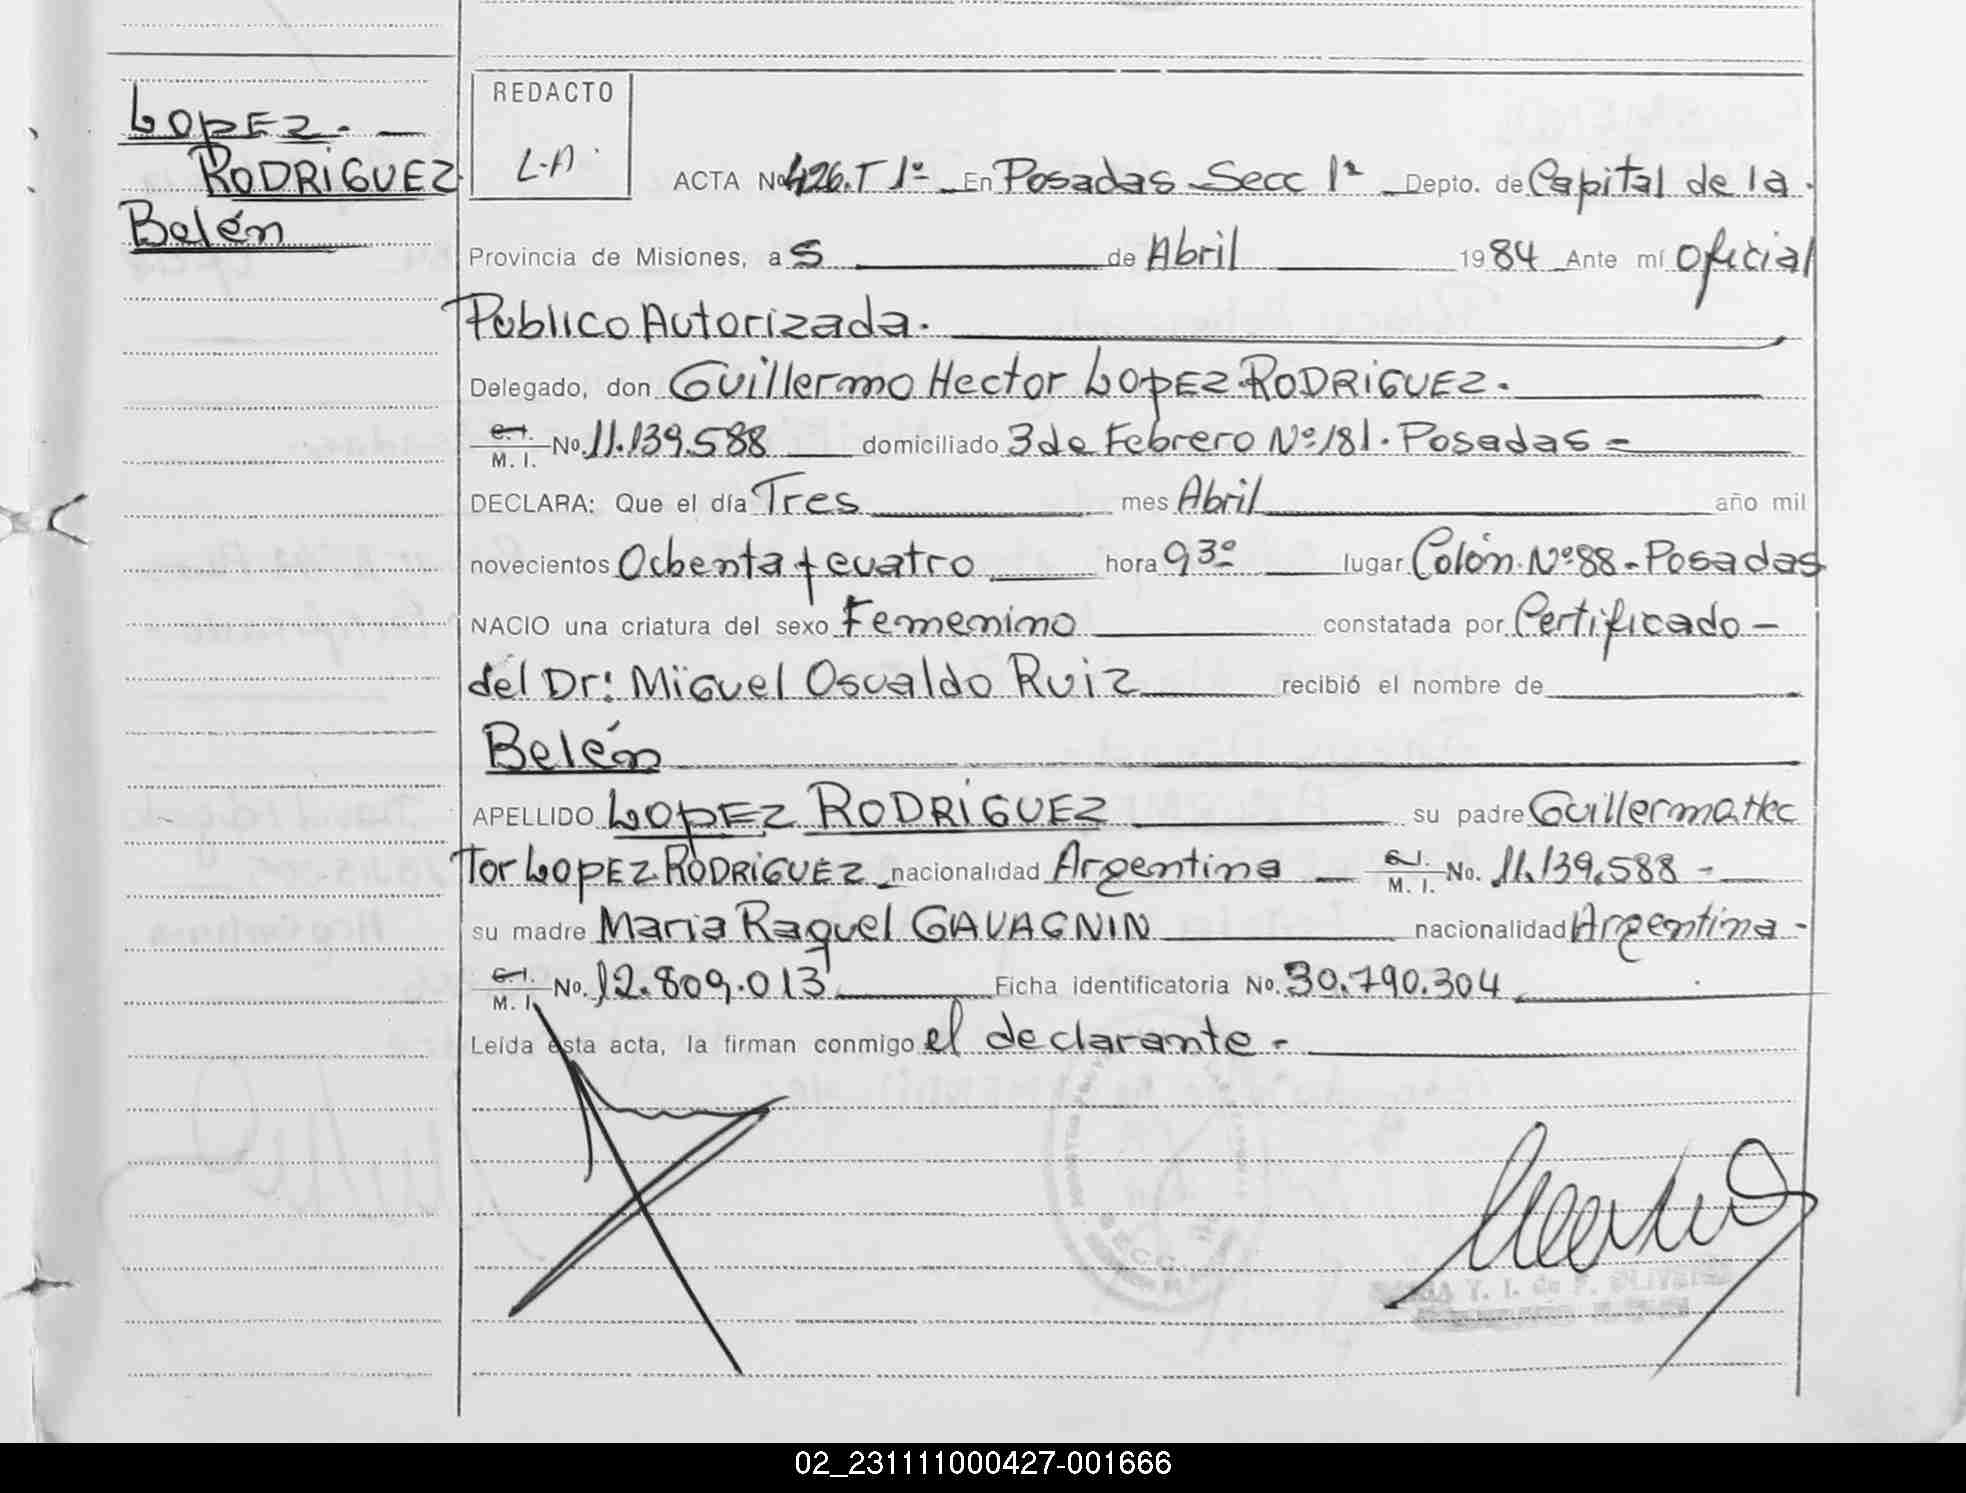 LOPEZ.
RODRIGUEZ
Belén
REDACTO
L.A.
ACTA No 426.T 1º En Posadas Secc 1ª Depto. de Capital de la.
Provincia de Misiones, a 5 de Abril 1984 Ante mí Oficial
Público Autorizada.
Delegado, don Guillermo Hector LOPEZ RODRIGUEZ.
C.I.
M. I. No. 11.139.588 domiciliado 3 de Febrero Nº 181. Posadas =
DECLARA: Que el día Tres mes Abril año mil
novecientos Ochenta y cuatro hora 9 3º lugar Colón. Nº 88 - Posadas
NACIO una criatura del sexo Femenino constatada por Certificado -
del Dr: Miguel Osvaldo Ruiz recibió el nombre de
Belén
APELLIDO LOPEZ RODRIGUEZ su padre Guillermo Hec
Tor LOPEZ RODRIGUEZ nacionalidad Argentina C.I.
M. I. No. 11.139.588 -
su madre Maria Raquel GAVAGNIN nacionalidad Argentina -
C.I.
M. I. No. 12.809.013 Ficha identificatoria No. 30.790.304
Leída esta acta, la firman conmigo el declarante -
Y. I. de F.
02_231111000427-001666